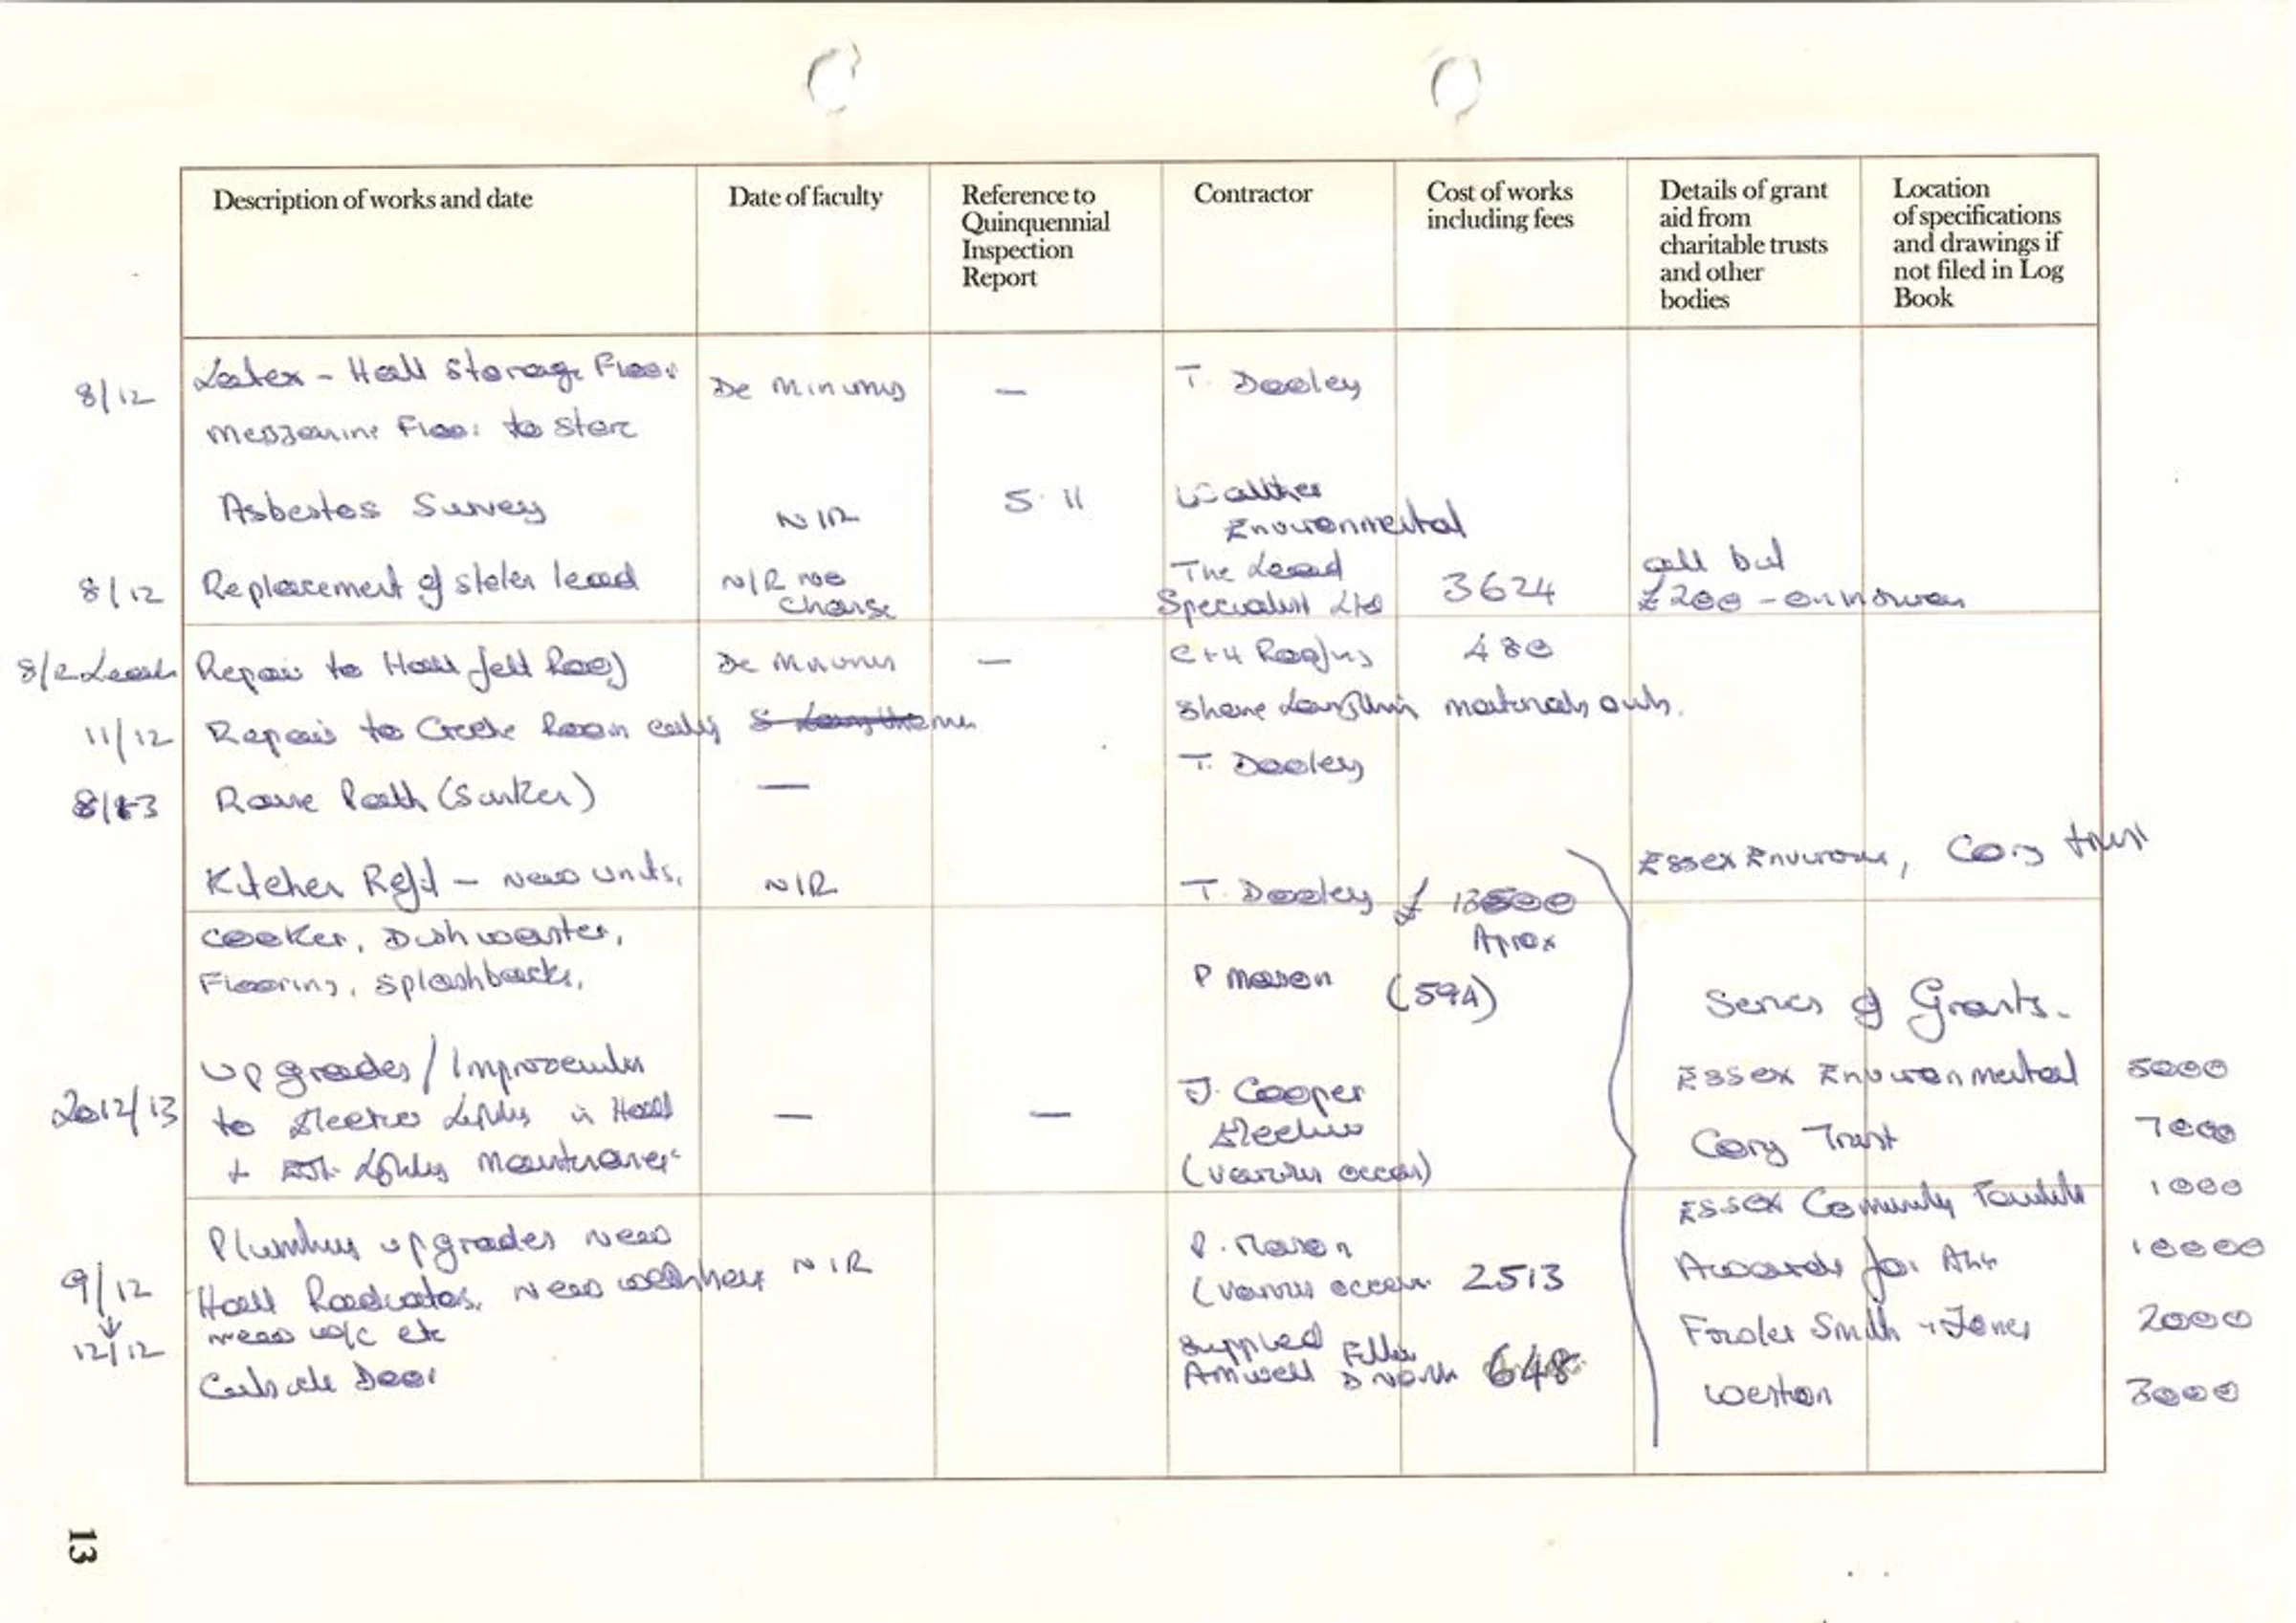 Description of works and date
Date of faculty
Reference to
Quinquennial
Inspection
Report
Contractor
Cost of works
including fees
Details of grant
aid from
charitable trusts
and other
bodies
Location
of specifications
and drawings if
not filed in Log
Book
8/12 Latex - Hall Storage Floor De Minimis — T. Dooley
Mezzanine Floor to Store
Asbestos Survey N/R 5.11 Walther
Environmental
8/12 Replacement of stolen lead N/R no The Lead 3624 all but
charge Specialist Ltd £200 - on insuran
8/12 Leak Repair to Hall felt Roof De Minimis — C+H Roofing 480
11/12 Repair to Creche Room Shane materials only.
8/13 Raise Path (Sunken) — T. Dooley
Kitchen Refit - new units, N/R T. Dooley £ 13500 Essex Environ, Cory trust
Cooker, Dishwasher, Aprox
Flooring, Splashbacks, P Mason (594)
Series of Grants.
Upgrades/Improvements Essex Environmental 5000
2012/13 to Electric Lights in Hall — — J. Cooper Cory Trust 7000
+ Lights Maintenance Electric
(various occas) Essex Comunity Foundatn 1000
Plumbing upgrades new P. Mason Awards for All 10000
9/12 Hall Radiators, new N/R (various occas. 2513
↓ new w/c etc Supplied Fowler Smith + Jones 2000
12/12 Cubicle Door Amwell 648 Weston 3000
13